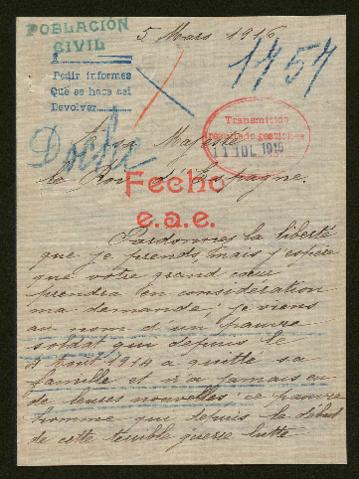 POBLACIÓN
CIVIL
5 Mars 1916
1
Pedir informes
Que se hace así
Devolver
1757
Transmitido
11 JUL 1916
A sa Majesté
le Roi d'Espagne.
Fecho
e.a.e.
Pardonnez la liberté
que je prends, mais j'espère
que votre grand cœur
prendra en considération
ma demande, je viens
au nom d'un pauvre
soldat qui depuis le
Août 1914 a quitté sa
famille et n'a jamais eu
de leurs nouvelles ce pauvre
homme qui depuis le début
de cette terrible guerre lutte